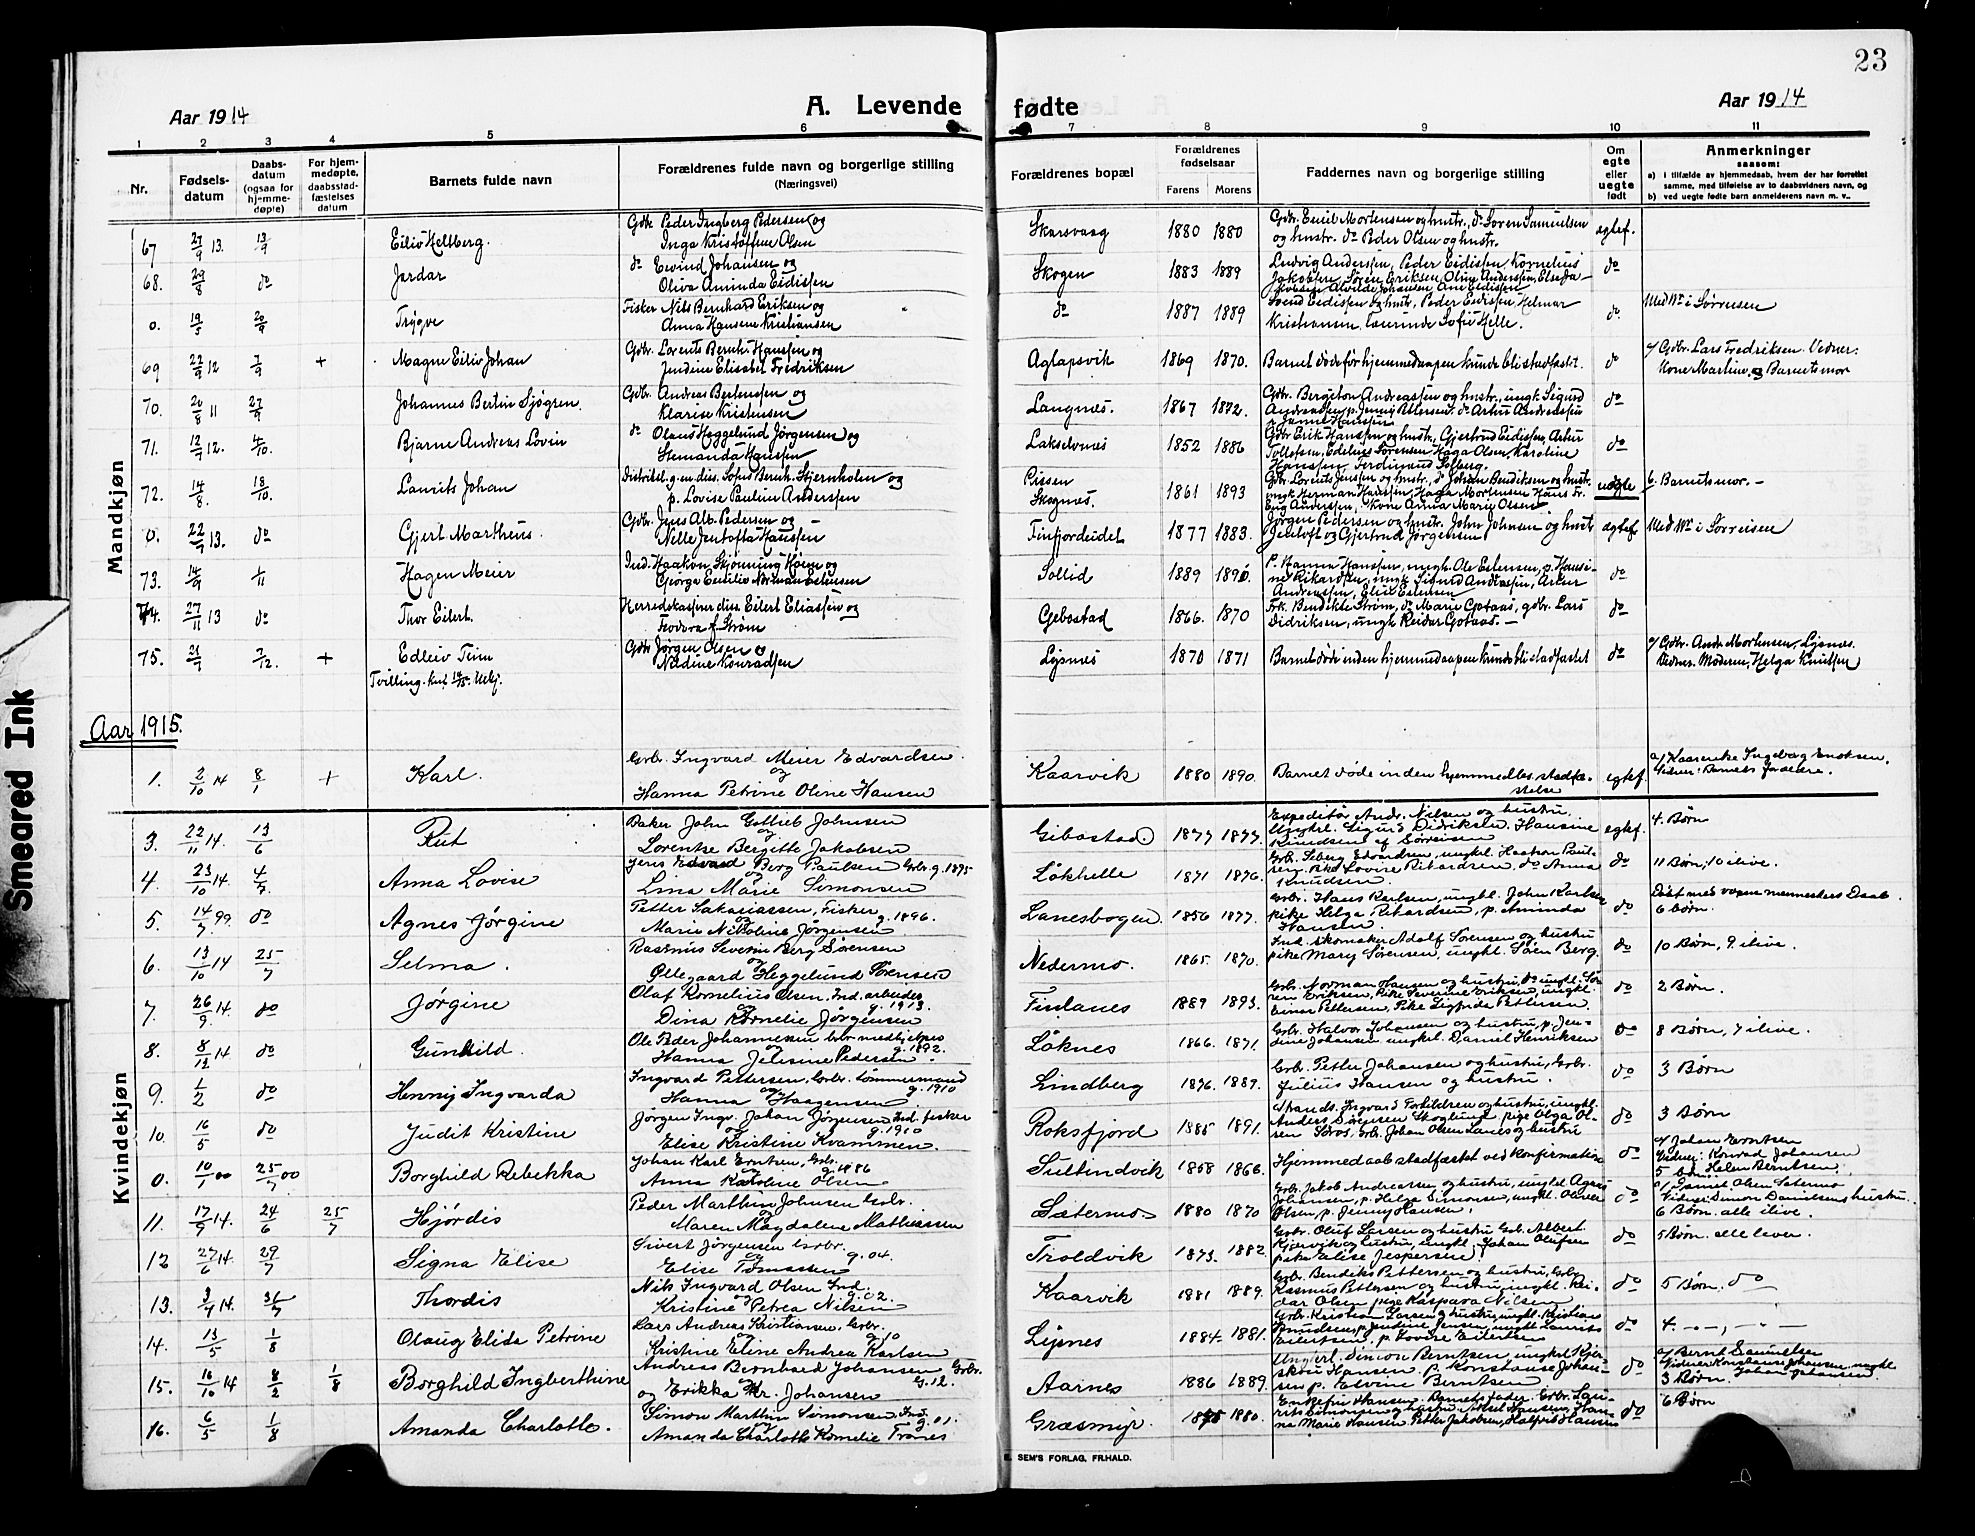 23
Aar 1914
A. Levende fødte
Aar 1914
1 2 3 4 5 6 7 8 9 10 11
Nr.
Fødsels-
datum
Daabs-
datum
(ogsaa for
hjemme-
døpte)
For hjem-
medøpte,
daabsstad-
fæstelses
datum
Barnets fulde navn
Forældrenes fulde navn og borgerlige stilling
(Næringsvei)
Forældrenes bopæl
Forældrenes
fødselsaar
Farens Morens
Faddernes navn og borgerlige stilling
Om
egte
eller
uegte
født
Anmerkninger
saasom:
a) i tilfælde av hjemmedaab, hvem der har forrettet
samme, med tilføielse av to daabsvidners navn, og
b) ved uegte fødte barn anmelderens navn m. v.
Mandkjøn
67 27/9 13. 13/9 Eiliv Hellberg. Gdbr. Peder Ingberg Pedersen og
Inga Kristoffine Olsen Skarsvaag 1880 1880 Gdbr. Emil Mortensen og hustr., do Søren Samuelsen
og hustr. do Peder Olsen og hustr. egtef.
68. 29/8 do Jardar do Eivind Johansen og
Oliva Aminda Eidissen Skogen 1883 1889 Ludvig Anderssen, Peder Eidissen, Kornelius
do
0. 19/5 20/9 Trygve Fisker Nils Bernhard Eriksen og
Anna Hansene Kristiansen do 1887 1889 Svend Eidissen og hustr., Peder Eidissen, Helmar
Kristiansen, Laurinde Sofie Helle. do. Med Nr i Sørreisen
69 22/9 12 7/9 + Magne Eiliv Johan Gdbr. Lorents Bernh. Hanssen og
Jendine Elisabet Fredriksen Aglapsvik 1869 1870. Barnet døde før hjemmedaapen kunde bli stadfæstet. do a/ Gdbr. Lars Fredriksen. Vidner:
Kone Martine, og Barnets mor
70. 20/8 11 27/9 Johannes Bertin Sjøgren. Gdbr. Andreas Berlenssen og
Klarise Kristensen Langnes. 1867 1872. Gdbr. Bergiton Andreassen og hustr., ungk. Sigurd
Andreassen, p. Jenny Pettersen, do Artur Andreassen
p. Jamil Hanssen do
71. 12/9 12. 4/10. Bjarne Andreas Lovin do Olaus Heggelund Jørgensen og
Stemanda Hanssen Lakselvnes 1852 1886 Gdbr. Erik Hanssen og hustr., Gjertrud Eidissen, Artur
Tollefsen, Edelius Sørensen, Haga Olsen, Karoline
Hanssen, Ferdinand Solberg. do
72. 14/8. 18/10. Laurits Johan Distriktsl. g. en dist. Sofus Bernh. Stjernholm og
p. Lovise Pauline Anderssen
Skognes. 1861 1893 Gdbr. Lorents Jenssen og hustr., do Johan Bendiksen og hustr.
ungk. Herman Hanssen, Haga Mortensen, Hans Fr.
Eng Anderssen, Kone Anna Marie Olsen uegte b. Barnets mor. —
0. 22/9 13. do Gjert Martheus. Gdbr. Jens Alb. Pedersen og
Nelle Jentofta Hanssen Finfjordeidet 1877 1883. Jørgen Pedersen og hustr. John Johnsen og hustr
Jentoft og Gjertrud Jørgensen egtef Med Nr i Sørreisen
73. 14/9 1/11 Hagen Meier Ind. Haakon Skjønning Høier og
Gjørga Emilie Norman Estensen Sollid 1889 1890. P. Hanna Hanssen, ungk. Ole Estensen, p. Hansi-
ne Rikardsen, ungk. Sigurd Andreassen, Artur
Andreassen, Elise Estensen do
74. 27/11 13 do Thor Eilert. Herredskasserer dist. Eilert Eliassen og
Teodora f. Strøm Gebostad 1866. 1870 Frk. Bendikte Strøm, do Marie Gotaas, gdbr. Lars
Didriksen, ungk. Reidar Gotaas. — do
75. 21/9 2/12. + Edleiv Teim Gdbr. Jørgen Olsen og
Nildine Konradsen Lysnes 1870 1871 Barnet døde inden hjemmedaapen kunde bli stadfæstet do a/ Gdbr. Andr. Mortensen, Lysnes.
Vidner. Moderen, Helga Knutsen
Tvilling.
Aar 1915.
1. 2/10 14 8/1 + Karl. Grbr. Ingvard Meier Edvardsen
og
Hanna Petrine Oline Hansen Kaarvik 1880 1890. Barnet døde inden hjemmedbs. stadfæ-
stelse egtef. a/ Kaarenke Ingeborg Enoksen,
Vidner: Barnets forældre.
Kvindekjøn
3. 22/11 14. 13/6 Rut Baker John Gottlieb Johnsen
og
Lorentze Bergitte Jakobsen Gibostad. 1877 1877. Expeditør Andr. Nilsen og hustru
Ungkrl. Sigurd Didriksen. Hansine
Knudsen af Sørreisen egtef. 4. Børn
4. 23/10 14. 4/7. Anna Lovise Jens Edvard Berg Paulsen Grbr. g. 1895
og
Lina Marie Simonsen Løkhelle 1871 1876. Grbr. Seberg Edvardsen, ungkl. Haakon Paul-
sen, Pike Lovise Rikardsen, do Anna
Knudsen. do 11 Børn, 10 ilive.
5. 14/7 99 do Agnes Jørgine Petter Sakariassen, Fisker
og g. 1896.
Marie Nikoline Jørgensen Lanesbogen. 1856 1877. Grbr. Hans Karlsen, ungkl. John Karlsen
pike Helga Rikardsen, p. Aminda
Hansen. do Døbt med voxne menneskers Daab.
6 børn.
6. 13/10 14 25/7 Selma. Rasmus Severin Berg Sørensen
og
Øllegaard Heggelund Sørensen Nedermo. 1865 1870. Ind. skomaker Adolf Sørensen og hustru
pike Mary Sørensen, ungkl. Søren Berg. do 10 Børn, 9 ilive.
7. 26/9. 14. do Jørgine Olaf Kornelius Olsen, Ind. arbeider
og g. 1913.
Dina Kornelie Jørgensen Finlanes 1889 1893. Grbr. Norman Hansen og hustru, do ungkl. Sø-
ren Eriksen, Pike Severine Eriksen, ungkl.
Einar Pettersen, Pike Sigfrida Pettersen. do 2 Børn.
8. 8/12 14 do Gunhild. Ole Peder Johannessen
g. 1892.
Hanna Jelisine Pedersen Løknes 1866. 1871. Grbr. Halvor Johansen og hustru, p. Jen-
sine Johansen ungkrl. Daniel Henriksen do 8 Børn, 7 ilive.
9. 1/2 do Henny Ingvarda Ingvard Pettersen, Grbr. tømmermand
og g. 1910
Hanna Haagensen Lindberg 1876. 1887. Grbr. Petter Johansen og hustru, Grbr.
Julius Hansen og hustru. do 3 Børn
10. 16/5 do Judit Kristine Jørgen Ingv. Johan Jørgensen Ind. fisker
og g. 1910
Elise Kristine Kvammen. Roksfjord 1885 1891. Strands. Ingvard Torkildsen og hustru, ungkl.
Anders Sørensen Skoglund, pige Olga Ol-
sen Søros, Grbr. Johan Olsen Lanes og hustru do 3 Børn
0. 10/1 00 25/7 00 Borghild Rebekka Johan Karl Erntsen, Grbr.
og g. 1886
Anna Karoline Olsen Sultindvik 1858 1866. Hjemmedaab stadfæstet ved konfirmation do a/ Johan Erntsen
Vidner: Konrad Johansen
5 børn. Helen Berntsen.
11. 17/9 14. 24/6 25/7 Hjørdis Peder Marthin Johnsen Grbr.
og
Maren Magdalene Mathiassen Sætermo 1880 1870 Grbr. Jakob Andreassen og hustru, ungkl. Agnes
Johansen, p. Helga Simonsen, ungkl. Oliver
Olsen, p. Jenny Hansen. do a/ Daniel Olsen Sætermo
Vidner: Simon Danielsens hustru.
6 Børn. alle ilive.
12 27/6 14. 29/7 Signa Elise Sivert Jørgensen Grbr.
og g. 04.
Elise Tomassen Troldvik 1873. 1882. Grbr. Oluf Larsen og hustru, Grbr. Albert
Kjærvik og hustru, ungkl. Johan Olufsen
pike Elise Jespersen do 5 Børn. alle lever.
13. 3/9 14. 31/7 Thordis Nils Ingvard Olsen Ind.
og g. 02.
Kristine Petrea Nilsen Kaarvik 1881 1889. Grbr. Bendiks Pettersen og hustru, Grbr.
Rasmus Pettersen og hustru, ungkl. Rei-
dar Olsen pige Kaspara Nilsen do 5 Børn. do
14. 13/5 1/8 Olaug Elida Petrine Lars Andreas Kristiansen, Grbr.
og g. 10
Kristine Eline Andrea Karlsen Lysnes 1884 1881. Grbr. Kristian Larsen og hustru, ungkl. Kristian
Knudsen, p. Jendine Jensen, ungkl. Laurits
Eilertsen, p. Lovise Eilertsen do 4. — „ —, — „ —
15. 16/10 14 8/2 1/8 Borghild Ingberthine Andreas Bernhard Johansen Grbr.
G. 12.
og Erikka Kr. Johansen Aarnes 1886 1889. Ungkrl. Simon Berntsen, ungkrl. Kjer-
sken Hansen. p. Konstanse Johan-
sen p. Elvine Berntsen do a/ Bernt Samuelsen
Vidner Konstanse Johansen, ungkl.
3 Børn. Johan Johansen.
16. 6/5 1/8 Amanda Charlotte. Simon Marthin Simonsen Ind.
og g. 01.
Amanda Charlotte Kornelie Tranes Græsmyr. 1875 1880. Enkefru Hansen. Barnets fader. Grbr. Lau-
rits Simonsen og hustru, Aksel Hansen, Han-
na Marie Hansen, Petter Jakobsen, Halfrid Hansen do 6 Børn
E. SEM'S FORLAG, FR.HALD.
Smeared Ink